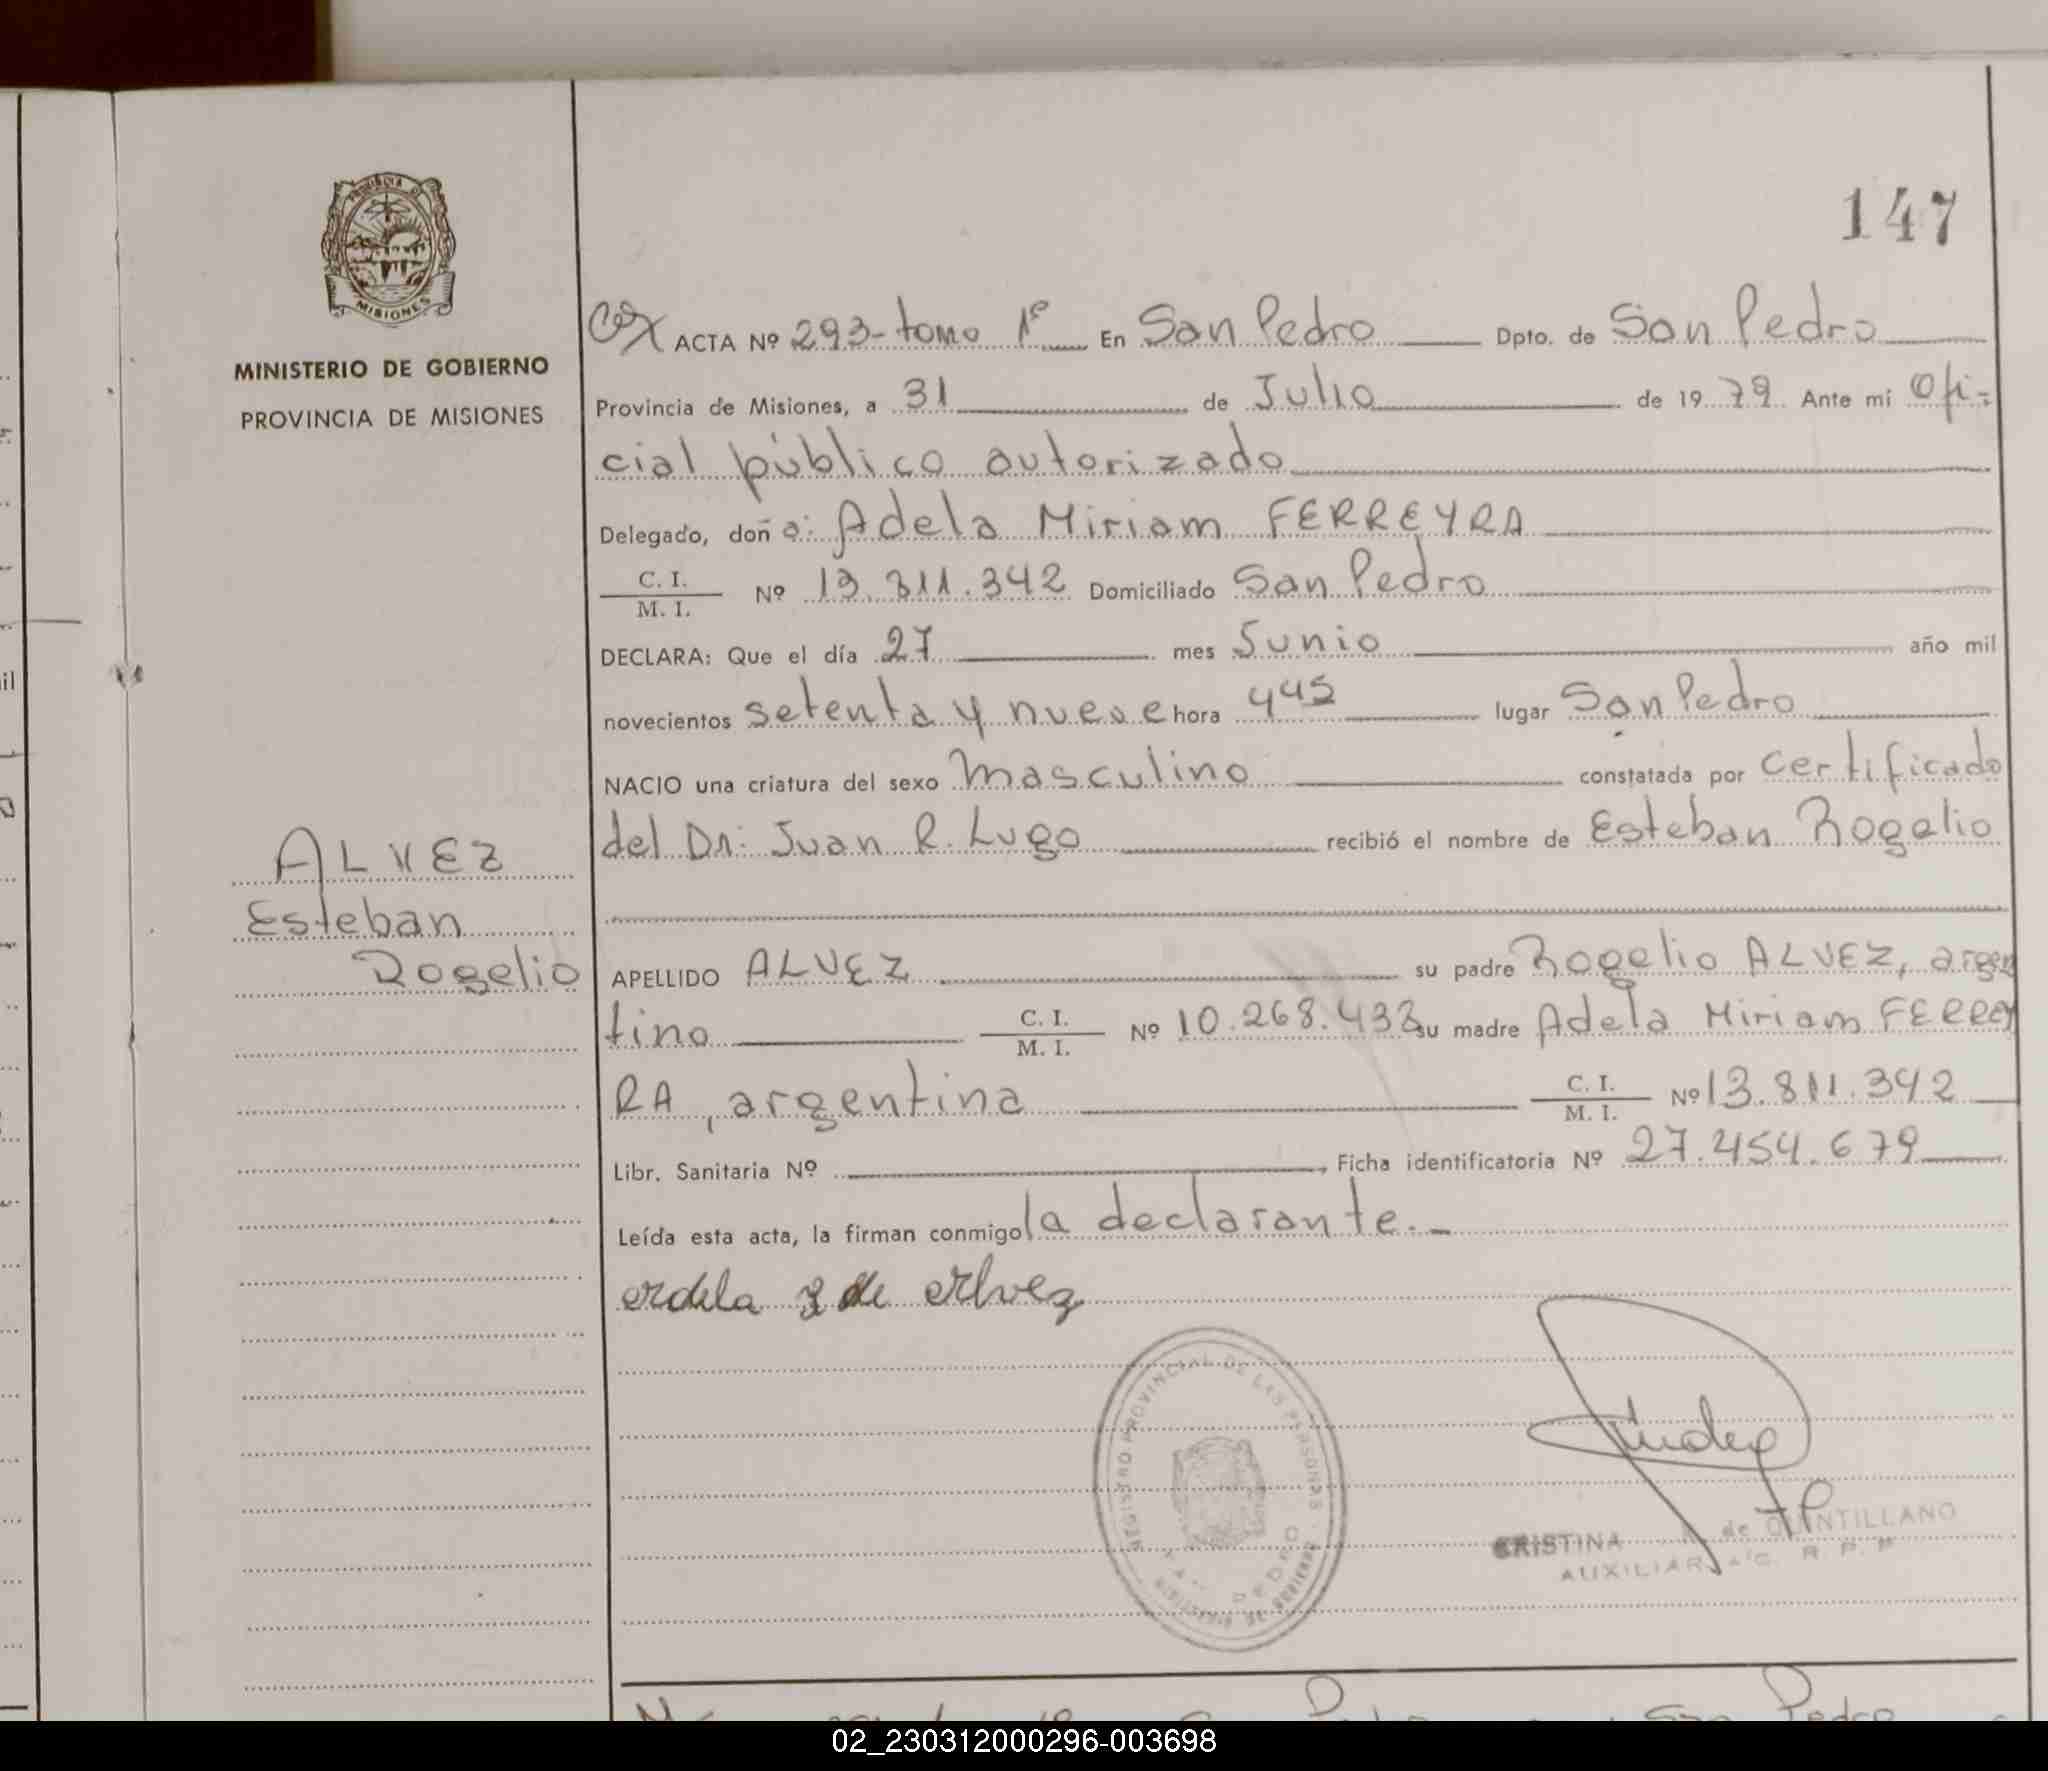 147
PROVINCIA DE
MISIONES
MINISTERIO DE GOBIERNO
PROVINCIA DE MISIONES
ALVEZ
Esteban
Rogelio
ACTA Nº 293-tomo 1º En San Pedro Dpto. de San Pedro
Provincia de Misiones, a 31 de Julio de 1979 Ante mi Ofi-
cial público autorizado
Delegado, doña: Adela Miriam FERREYRA
C. I.
M. I. Nº 13.811.342 Domiciliado San Pedro
DECLARA: Que el día 27 mes Junio año mil
novecientos setenta y nueve hora 445 lugar San Pedro
NACIO una criatura del sexo masculino constatada por certificado
del Dr: Juan R. Lugo recibió el nombre de Esteban Rogelio
APELLIDO ALVEZ su padre Rogelio ALVEZ, argen
tino C. I.
M. I. Nº 10.268.438 su madre Adela Miriam FERREY
RA, argentina C. I.
M. I. Nº 13.811.342
Libr. Sanitaria Nº , Ficha identificatoria Nº 27.454.679
Leída esta acta, la firman conmigo la declarante.-
de Alvez
REGISTRO PROVINCIAL DE LAS PERSONAS
CRISTINA de QUINTILLANO
AUXILIAR A/C. R. P. P
02_230312000296-003698